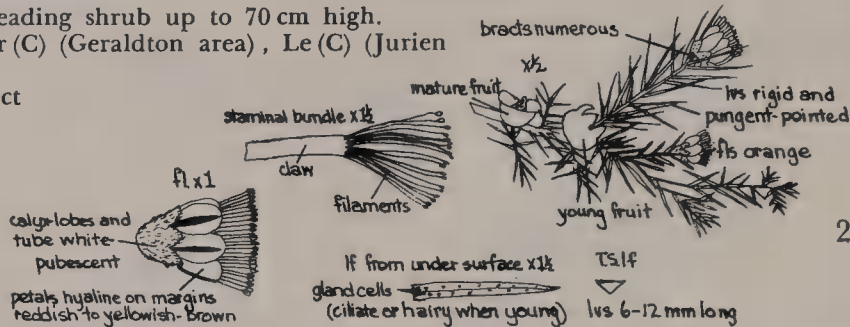 eading shrub up to 70 cm high.
r (C) (Geraldton area), Le (C) (Jurien
ct
bracts numerous
x½
mature fruit
lvs rigid and
pungent-pointed
staminal bundle x1½
claw
filaments
fls orange
young fruit
fl x1
calyx-lobes and
tube white-
pubescent
petals hyaline on margins
reddish to yellowish-brown
2
lf from under surface x1½
gland cells
(ciliate or hairy when young)
T.S lf
lvs 6-12 mm long